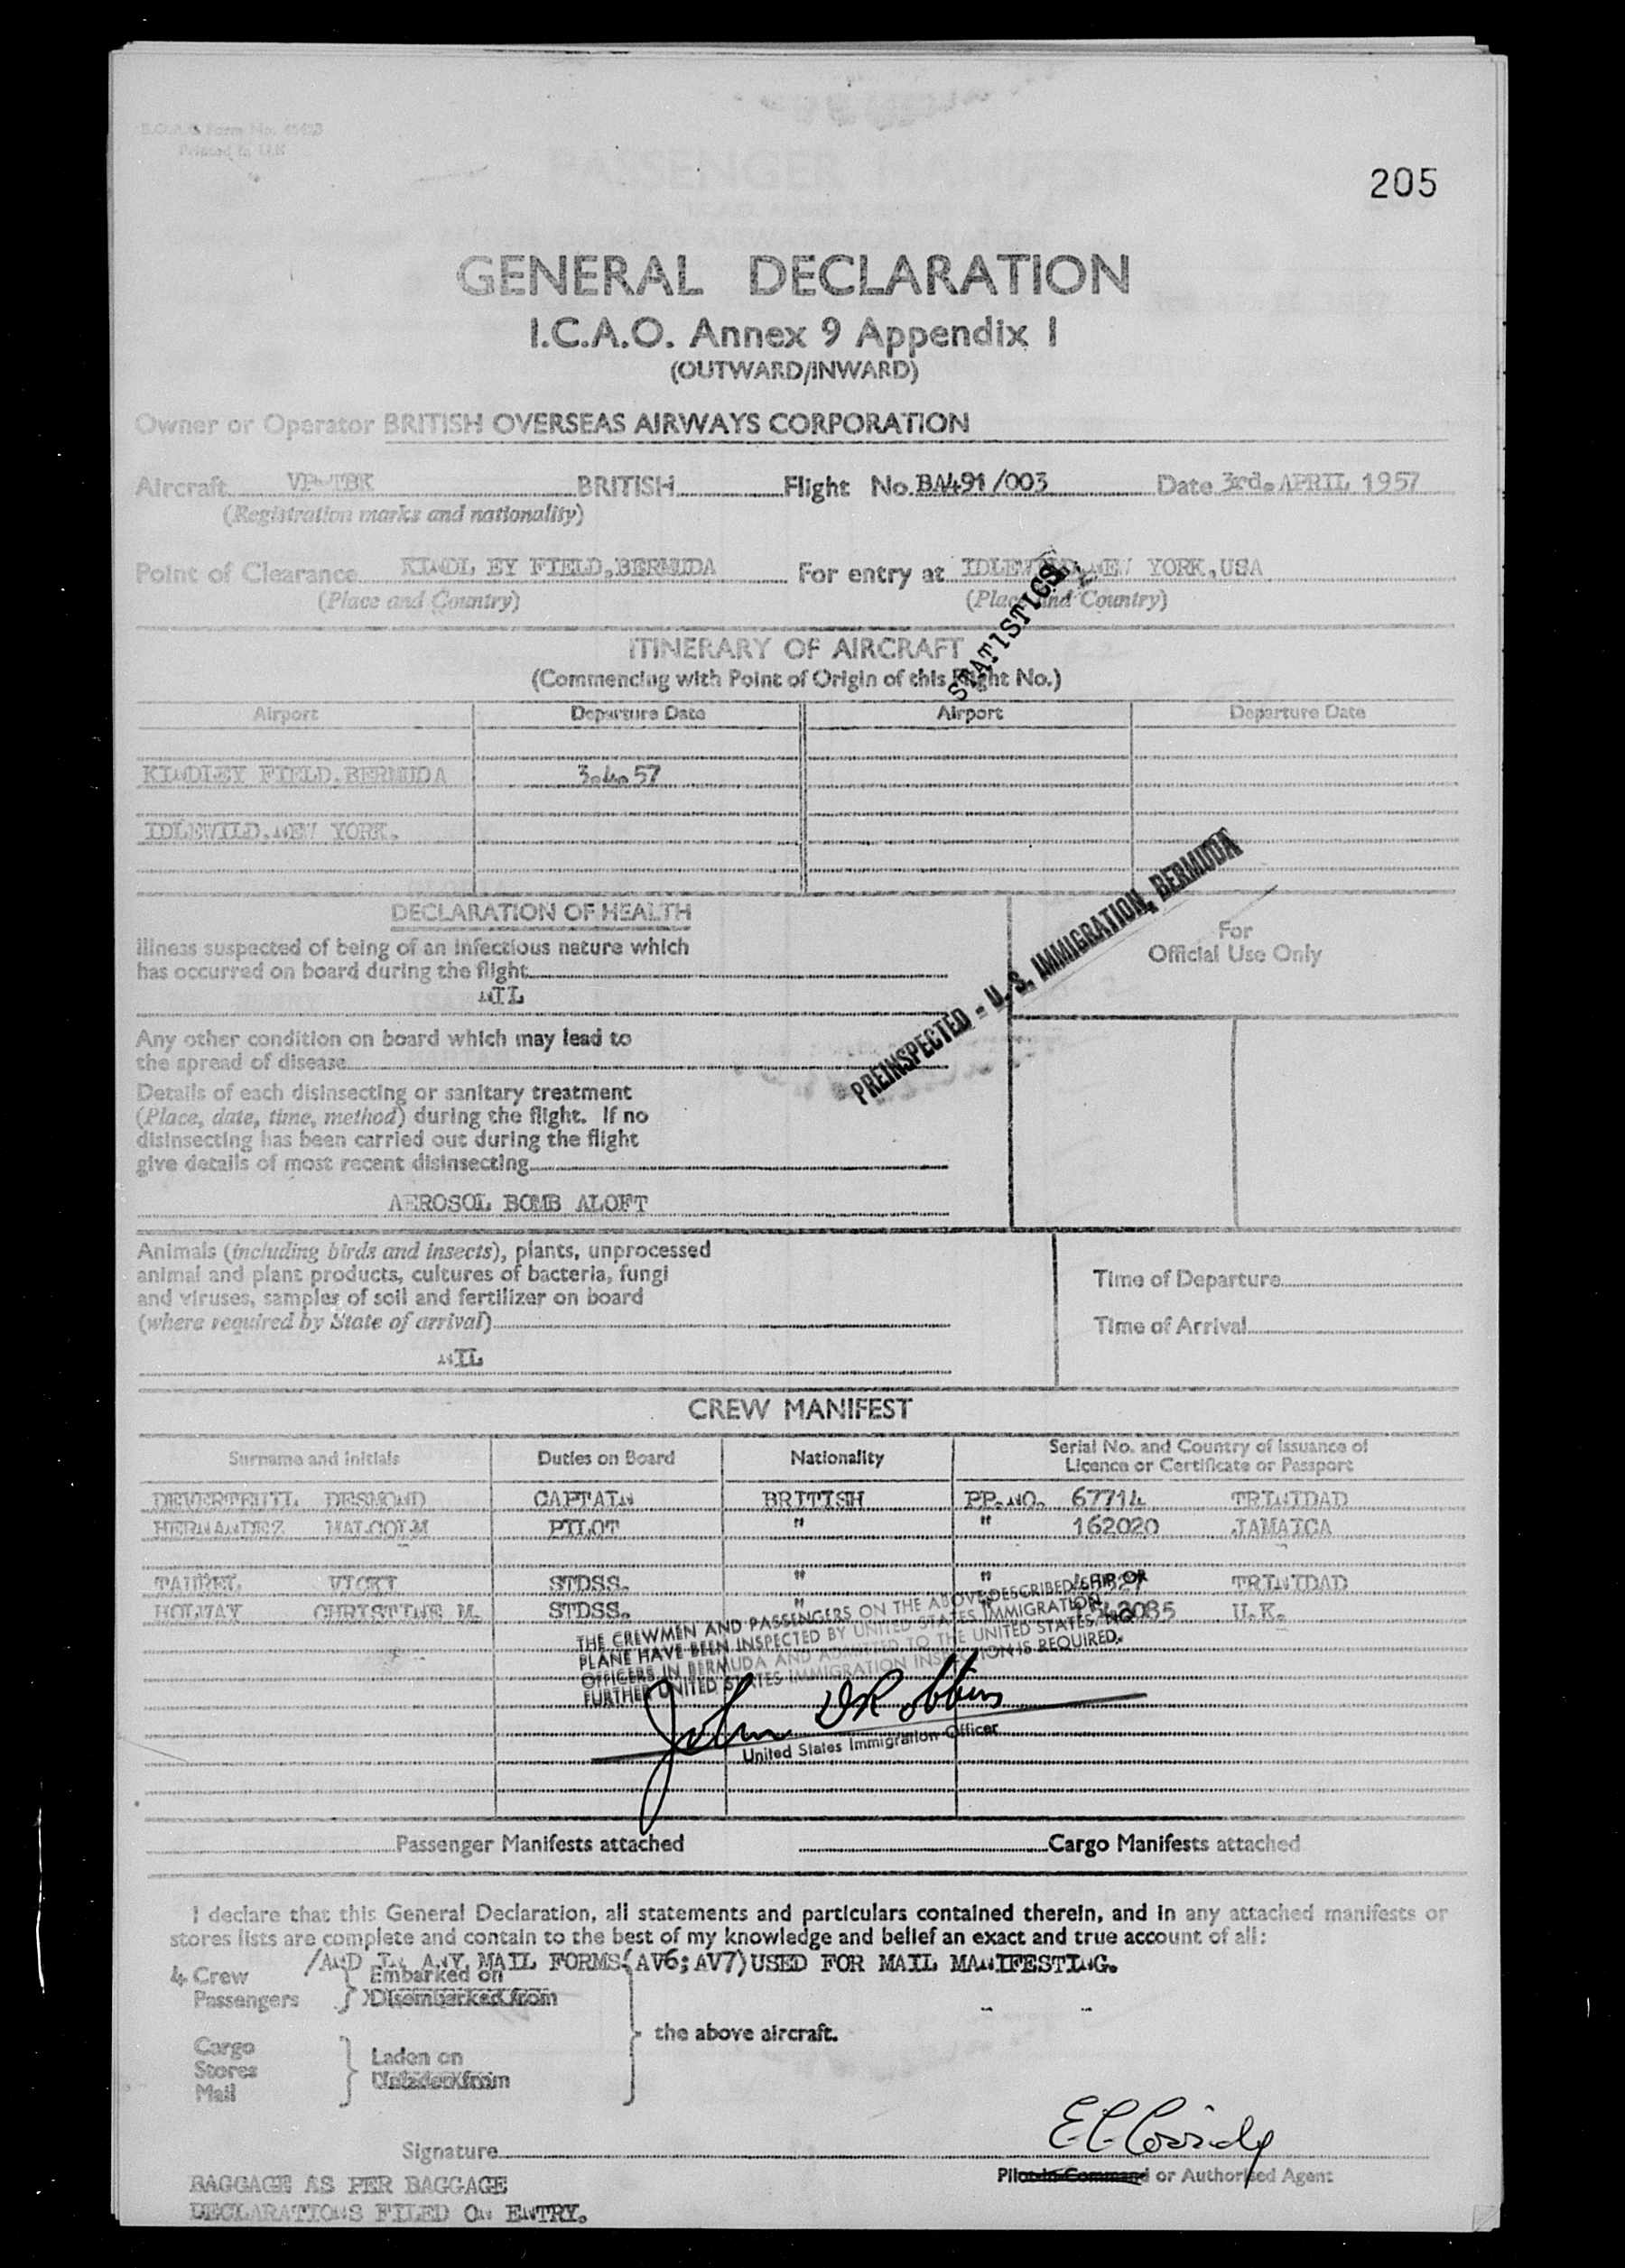 205
GENERAL DECLARATION
I.C.A.O. Annex 9 Appendix I
(OUTWARD/INWARD)
Owner or Operator BRITISH OVERSEAS AIRWAYS CORPORATION
Aircraft VP-TBK BRITISH Flight No. BA491/003 Date 3rd. APRIL 1957
(Registration marks and nationality)
Point of Clearance KINDLEY FIELD, BERMUDA For entry at IDLEWILD, NEW YORK, USA
(Place and Country) (Place and Country)
STATISTICS
ITINERARY OF AIRCRAFT
(Commencing with Point of Origin of this Flight No.)
Airport Departure Date Airport Departure Date
KINDLEY FIELD, BERMUDA 3.4.57
IDLEWILD, NEW YORK.
PREINSPECTED - U. S. IMMIGRATION, BERMUDA
DECLARATION OF HEALTH
For
Official Use Only
Illness suspected of being of an infectious nature which
has occurred on board during the flight
NIL
Any other condition on board which may lead to
the spread of disease
Details of each disinsecting or sanitary treatment
(Place, date, time, method) during the flight. If no
disinsecting has been carried out during the flight
give details of most recent disinsecting
AEROSOL BOMB ALOFT
Animals (including birds and insects), plants, unprocessed
animal and plant products, cultures of bacteria, fungi
and viruses, samples of soil and fertilizer on board
(where required by State of arrival)
NIL
Time of Departure
Time of Arrival
CREW MANIFEST
Surname and Initials Duties on Board Nationality Serial No. and Country of Issuance of
Licence or Certificate or Passport
DEVERTEUIL DESMOND CAPTAIN BRITISH PP. NO. 67714 TRINIDAD
HERNANDEZ MALCOLM PILOT " " 162020 JAMAICA
VICKY STDSS. " " TRINIDAD
HOLWAY CHRISTINE M. STDSS. " " U.K.
THE CREWMEN AND PASSENGERS ON THE ABOVE DESCRIBED SHIP OR
PLANE HAVE BEEN INSPECTED BY UNITED STATES IMMIGRATION
OFFICERS IN BERMUDA AND ADMITTED TO THE UNITED STATES. NO
FURTHER UNITED STATES IMMIGRATION INSPECTION IS REQUIRED.
John D Robbins
United States Immigration Officer
Passenger Manifests attached Cargo Manifests attached
I declare that this General Declaration, all statements and particulars contained therein, and in any attached manifests or
stores lists are complete and contain to the best of my knowledge and belief an exact and true account of all:
/AND IN ANY MAIL FORMS(AV6; AV7) USED FOR MAIL MANIFESTING.
4 Crew Embarked on
Passengers Disembarked from
the above aircraft.
Cargo
Stores Laden on
Mail Unladen from
Signature E C Cassidy
Pilot-in-Command or Authorised Agent
BAGGAGE AS PER BAGGAGE
DECLARATIONS FILED ON ENTRY.